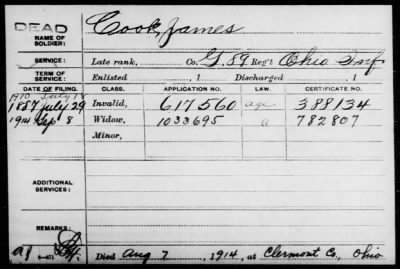 DEAD
NAME OF SOLDIER: Cook, James
SERVICE: Late rank, Co. G, 59 Reg't Ohio Inf
TERM OF SERVICE: Enlisted , 1 Discharged , 1
DATE OF FILING. CLASS. APPLICATION NO. LAW. CERTIFICATE NO.
1910 July 18
1887 July 29 Invalid, 617560 age 388134
1914 Sep 8 Widow, 1033695 a 782807
Minor,
ADDITIONAL SERVICES:
REMARKS:
Died Aug 7 , 1914, at Clermont Co., Ohio